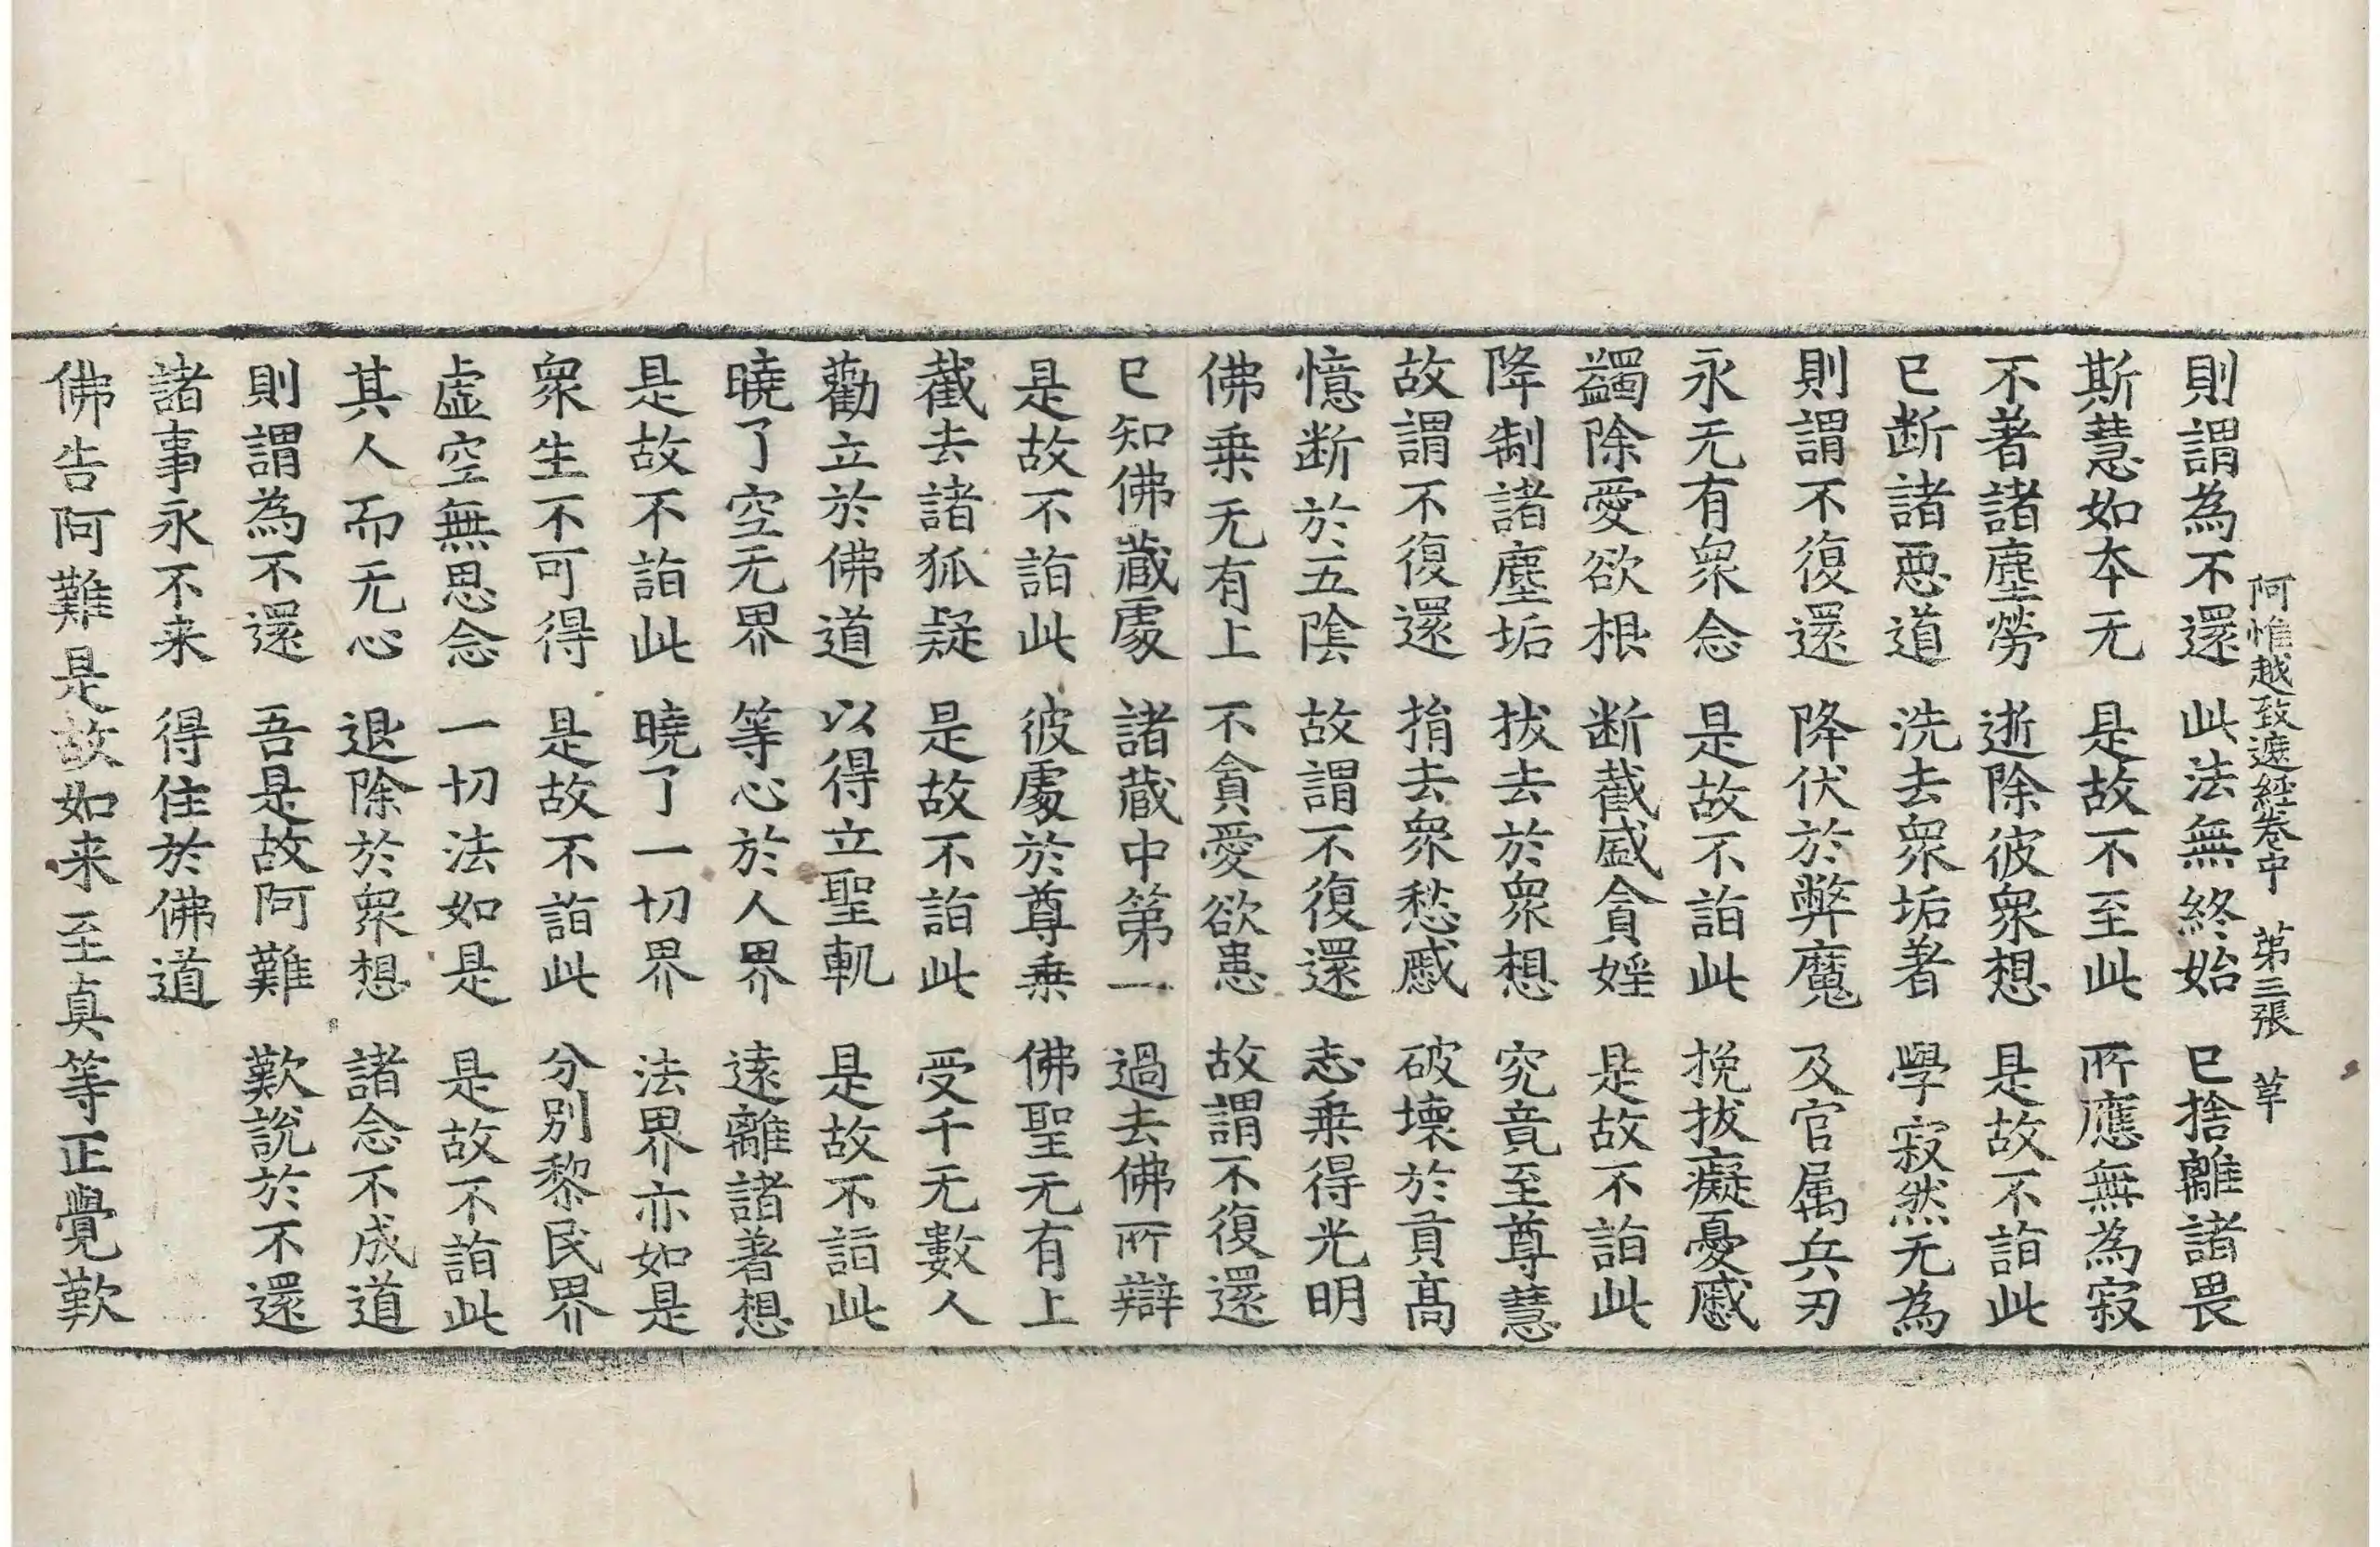 阿惟越致遮經卷中　第三張　草
則謂為不還　此法無終始　已捨離諸畏
斯慧如本无　是故不至此　所應無為寂
不著諸塵勞　逝除彼眾想　是故不詣此
已断諸惡道　洗去眾垢著　學寂然无為
則謂不復還　降伏於弊魔　及官属兵刃
永无有眾念　是故不詣此　挽拔癡憂慼
蠲除愛欲根　断截盛貪婬　是故不詣此
降制諸塵垢　拔去於眾想　究竟至尊慧
故謂不復還　捐去眾愁慼　破壞於貢高
憶断於五陰　故謂不復還　志乗得光明
佛乗无有上　不貪愛欲患　故謂不復還
已知佛藏處　諸藏中第一　過去佛所辯
是故不詣此　彼處於尊乗　佛聖无有上
截去諸狐疑　是故不詣此　受千无數人
勸立於佛道　以得立聖軌　是故不詣此
曉了空无界　等心於人界　遠離諸著想
是故不詣此　曉了一切界　法界亦如是
眾生不可得　是故不詣此　分別黎民界
虛空無思念　一切法如是　是故不詣此
其人而无心　退除於眾想　諸念不成道
則謂為不還　吾是故阿難　歎說於不還
諸事永不来　得住於佛道
佛告阿難是故如来至真等正覺歎